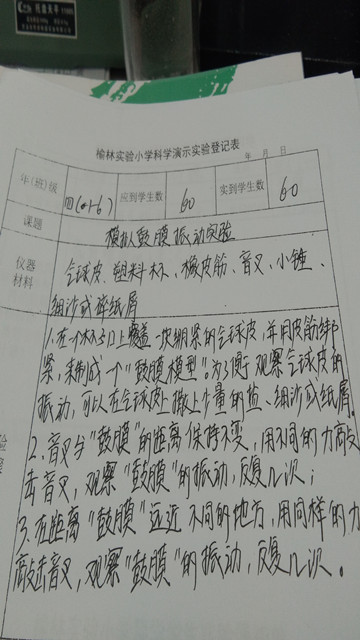 榆林实验小学科学演示实验登记表
年 月 日
年(班)级 四(4-6) 应到学生数 60 实到学生数 60
课题 模拟鼓膜振动实验
仪器材料 气球皮、塑料杯、橡皮筋、音叉、小锤、
细沙或碎纸屑
1.在一个杯口上覆盖一块绷紧的气球皮,并用皮筋绑
紧,来制成一个"鼓膜模型"。为了便于观察气球皮的
振动,可以在气球皮上撒上少量的盐、细沙或纸屑。
2.音叉与"鼓膜"的距离保持不变,用不同的力敲
击音叉,观察"鼓膜"的振动,反复几次;
3.在距离"鼓膜"远近不同的地方,用同样的力
敲击音叉,观察"鼓膜"的振动,反复几次。